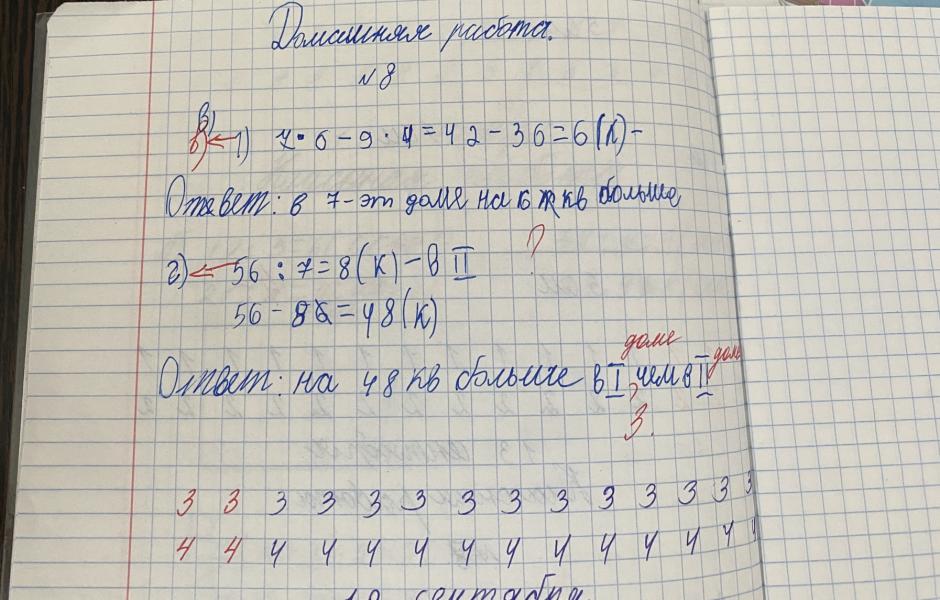 Домашняя работа.
№8
в) 1) 7·6-9·4=42-36=6(К)-
Ответ: в 7-эт доме на 6 кв больше
?
г) 56:7=8(К)-в II
56-8=48(К)
доме дом
Ответ: на 48 кв больше в I, чем в II
3.
3 3 3 3 3 3 3 3 3 3 3 3 3 3
4 4 4 4 4 4 4 4 4 4 4 4 4 4
19 сентября